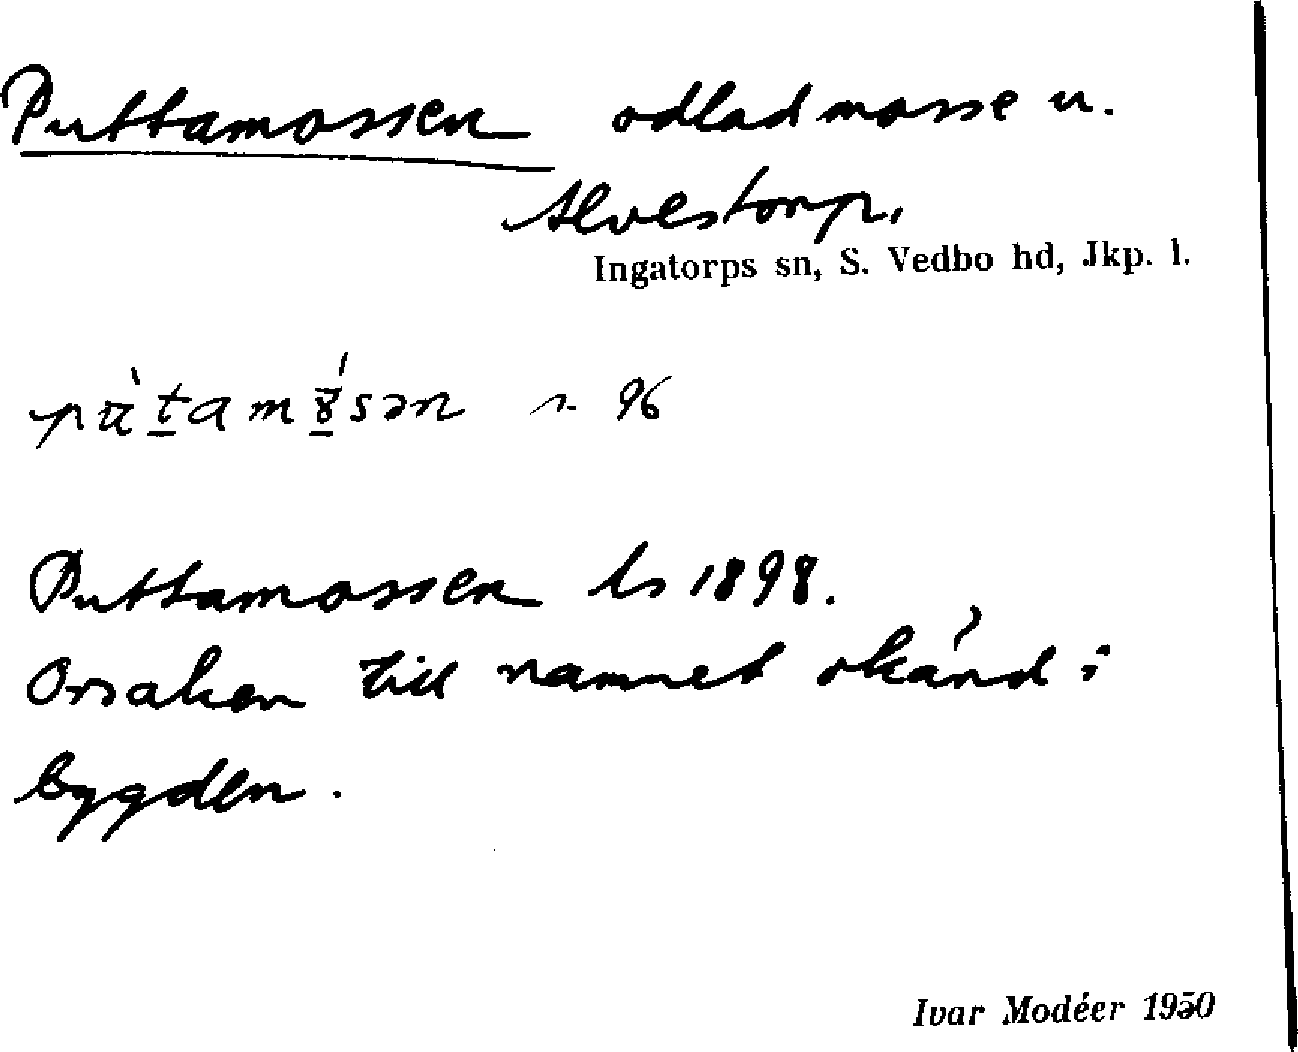 Puttamossen odlad mosse u.
Alvestorp.
Ingatorps sn, S. Vedbo hd, Jkp. l.
96
Puttamossen ls 1898.
Orsaken till namnet okänd i
bygden.
Ivar Modéer 1950